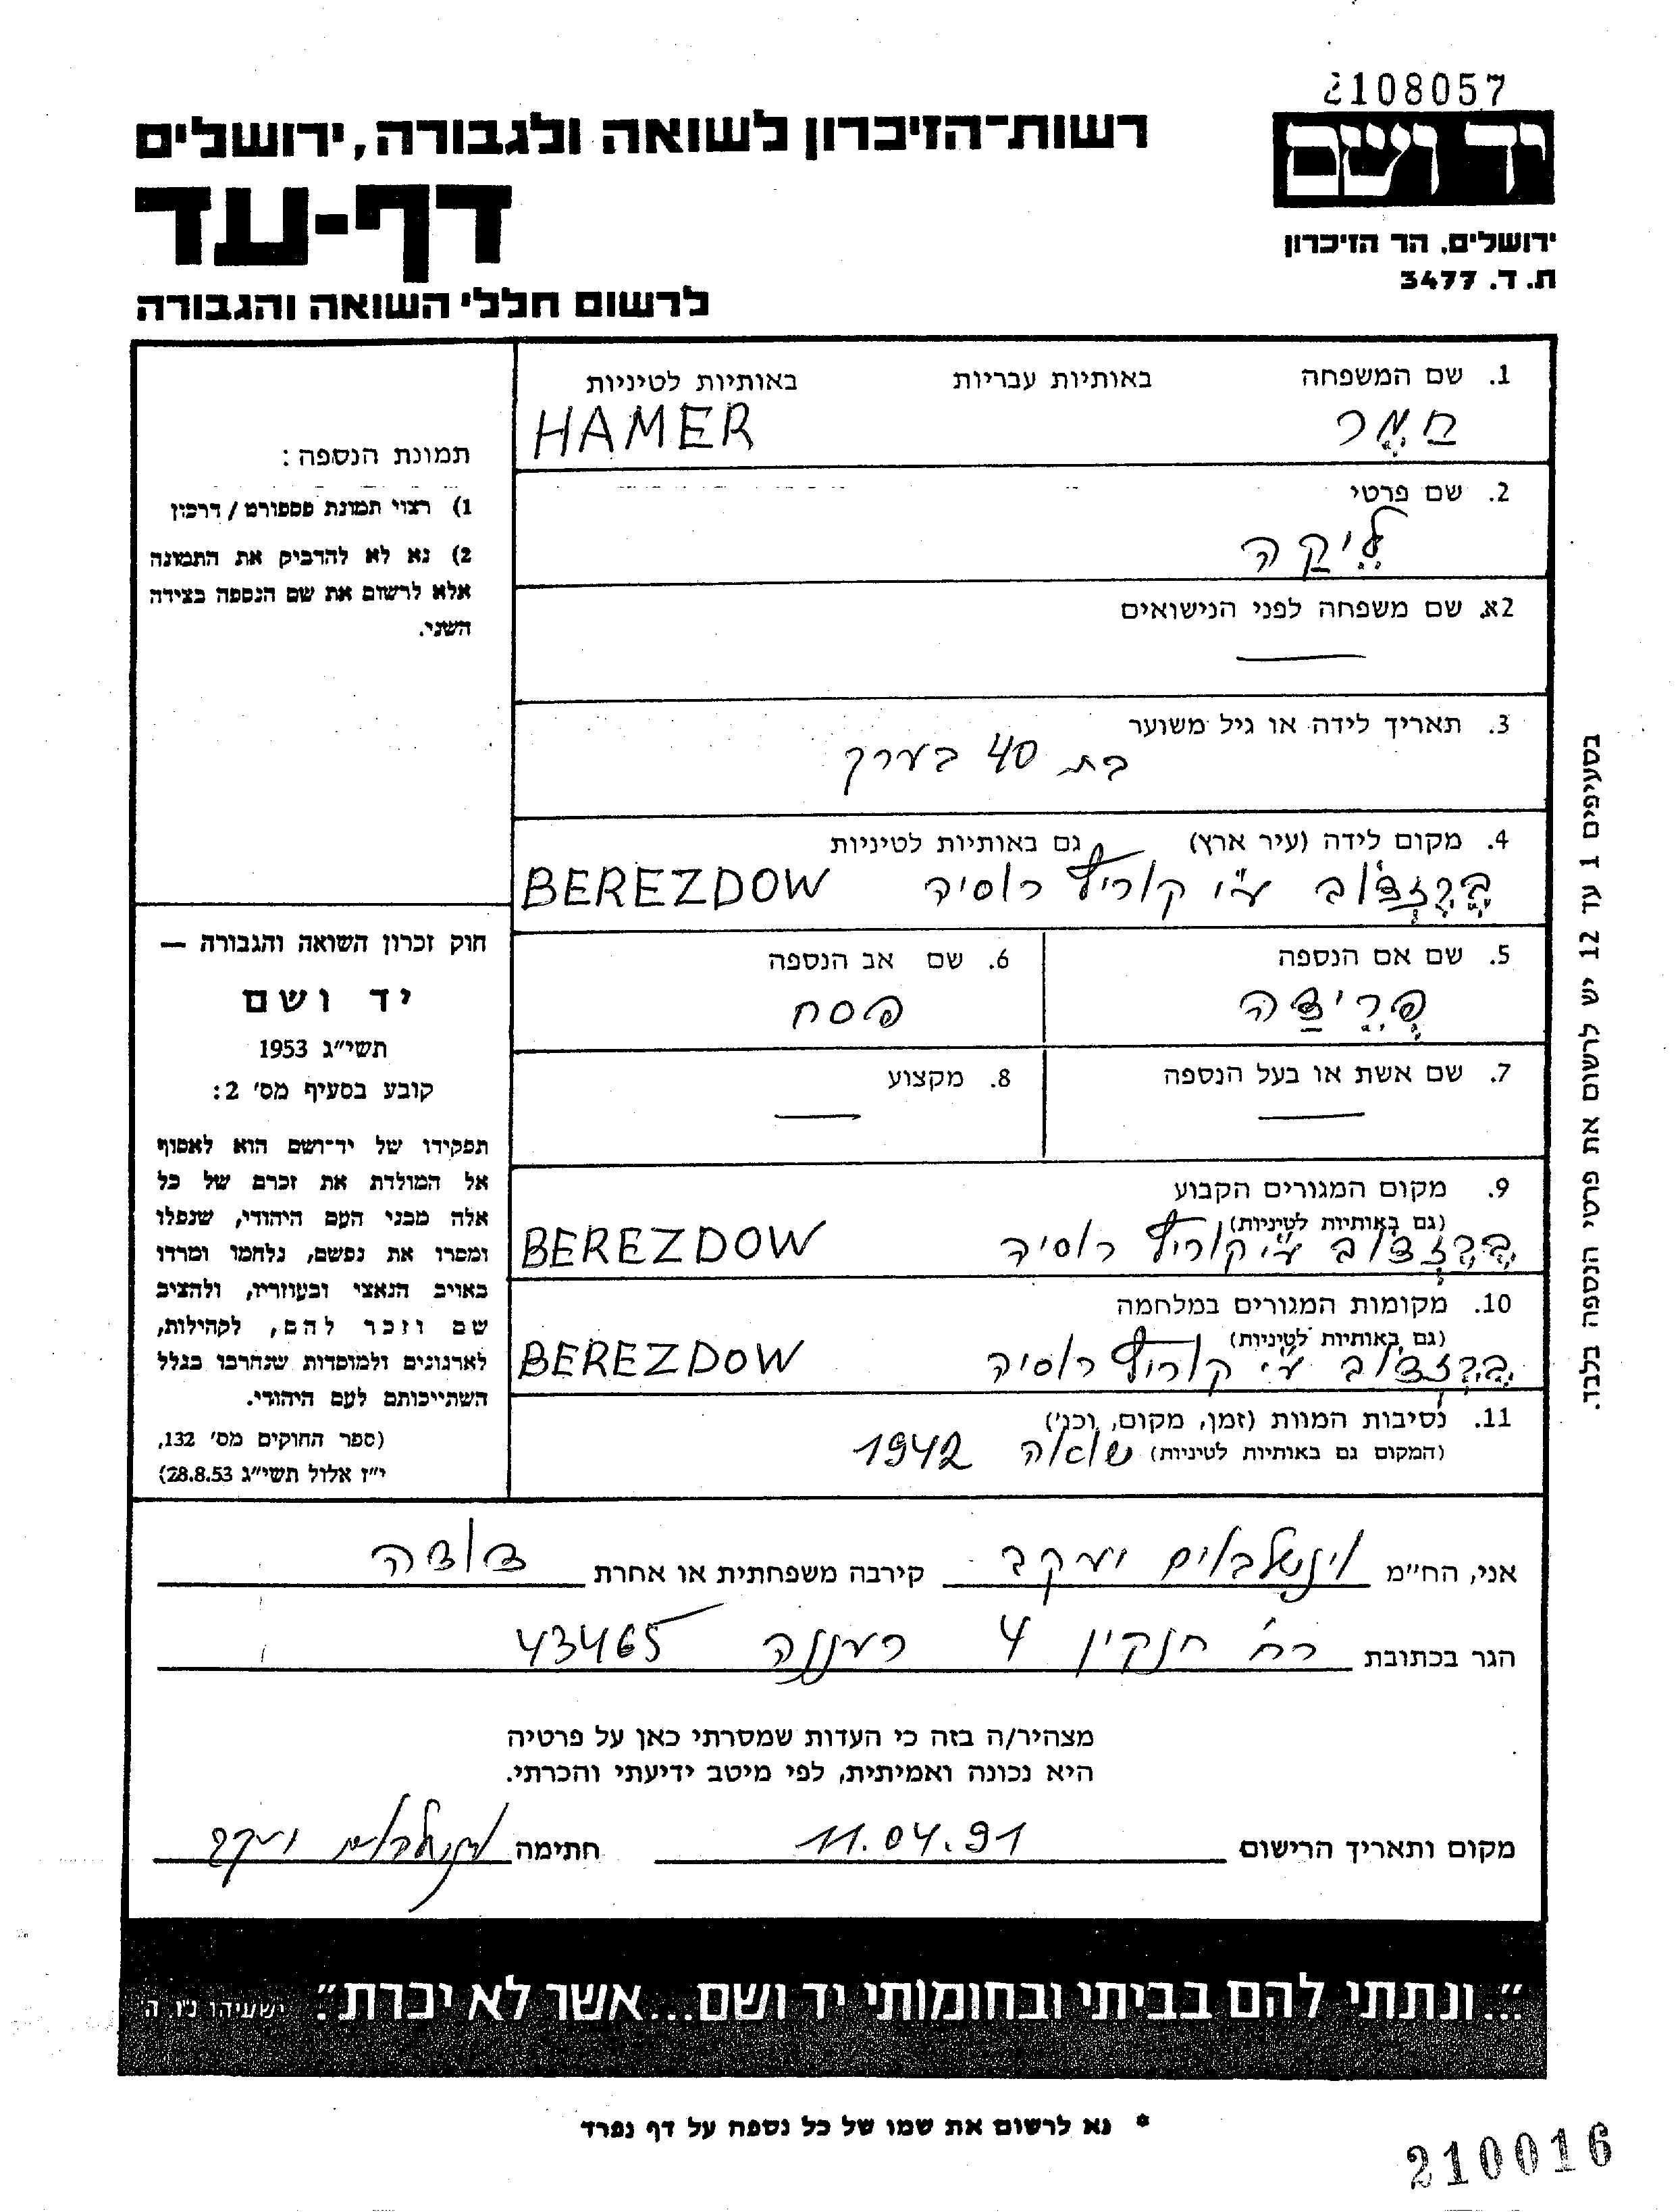 2108057
יד ושם
ירושלים, הר הזיכרון
ת. ד. 3477
רשות-הזיכרון לשואה ולגבורה, ירושלים
דף-עד
לרשום חללי השואה והגבורה
1. שם המשפחה באותיות עבריות באותיות לטיניות
חַמֶר HAMER
2. שם פרטי
לֵיקַה
2א. שם משפחה לפני הנישואים
3. תאריך לידה או גיל משוער
בת 40 בערך
4. מקום לידה (עיר ארץ) גם באותיות לטיניות
בֶּרֶזְדוֹב ע"י קוריץ רוסיה BEREZDOW
5. שם אם הנספה 6. שם אב הנספה
פְרֵידַה פסח
7. שם אשת או בעל הנספה 8. מקצוע
9. מקום המגורים הקבוע
(גם באותיות לטיניות)
בֶּרֶזְדוֹב ע"י קוריץ רוסיה BEREZDOW
10. מקומות המגורים במלחמה
(גם באותיות לטיניות)
בֶּרֶזְדוֹב ע"י קוריץ רוסיה BEREZDOW
11. נסיבות המוות (זמן, מקום, וכו')
(המקום גם באותיות לטיניות) שואה 1942
תמונת הנספה:
1) רצוי תמונת פספורט / דרכון
2) נא לא להדביק את התמונה
אלא לרשום את שם הנספה בצידה
השני.
חוק זכרון השואה והגבורה —
יד ושם
תשי"ג 1953
קובע בסעיף מס' 2:
תפקידו של יד-ושם הוא לאסוף
אל המולדת את זכרם של כל
אלה מבני העם היהודי, שנפלו
ומסרו את נפשם, נלחמו ומרדו
באויב הנאצי ובעוזריו, ולהציב
שם וזכר להם, לקהילות,
לארגונים ולמוסדות שנחרבו בגלל
השתייכותם לעם היהודי.
(ספר החוקים מס' 132,
י"ז אלול תשי"ג 28.8.53)
בסעיפים 1 עד 12 יש לרשום את פרטי הנספה בלבד.
אני, הח"מ וינשלבוים יעקב קירבה משפחתית או אחרת דודה
הגר בכתובת רח' חנקין 4 רעננה 43465
מצהיר/ה בזה כי העדות שמסרתי כאן על פרטיה
היא נכונה ואמיתית, לפי מיטב ידיעתי והכרתי.
מקום ותאריך הרישום 11.04.91 חתימה וינשלבוים יעקב
"...ונתתי להם בביתי ובחומותי יד ושם...אשר לא יכרת". ישעיהו נו ה
* נא לרשום את שמו של כל נספה על דף נפרד
210016